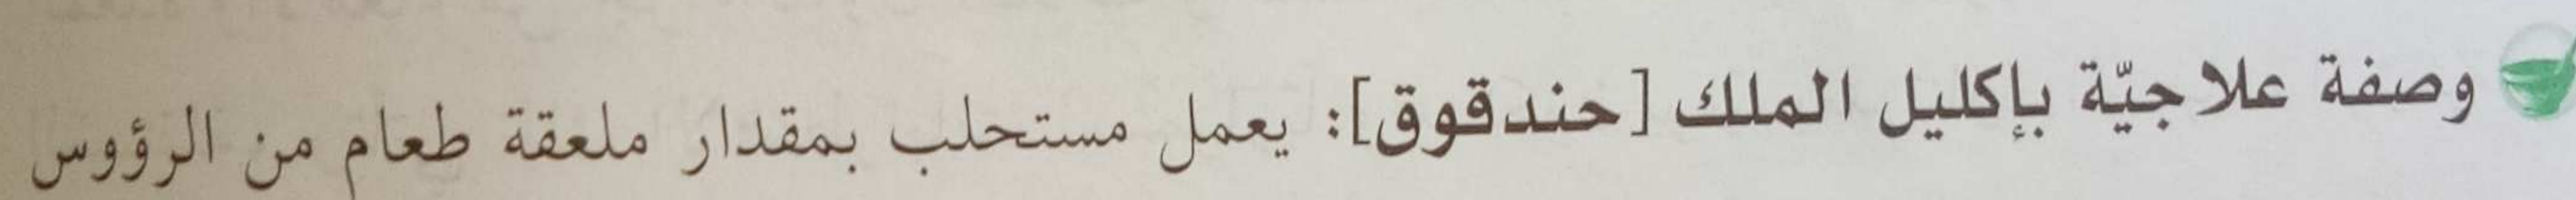 وصفة علاجيّة بإكليل الملك [حندقوق]: يعمل مستحلب بمقدار ملعقة طعام من الرؤوس